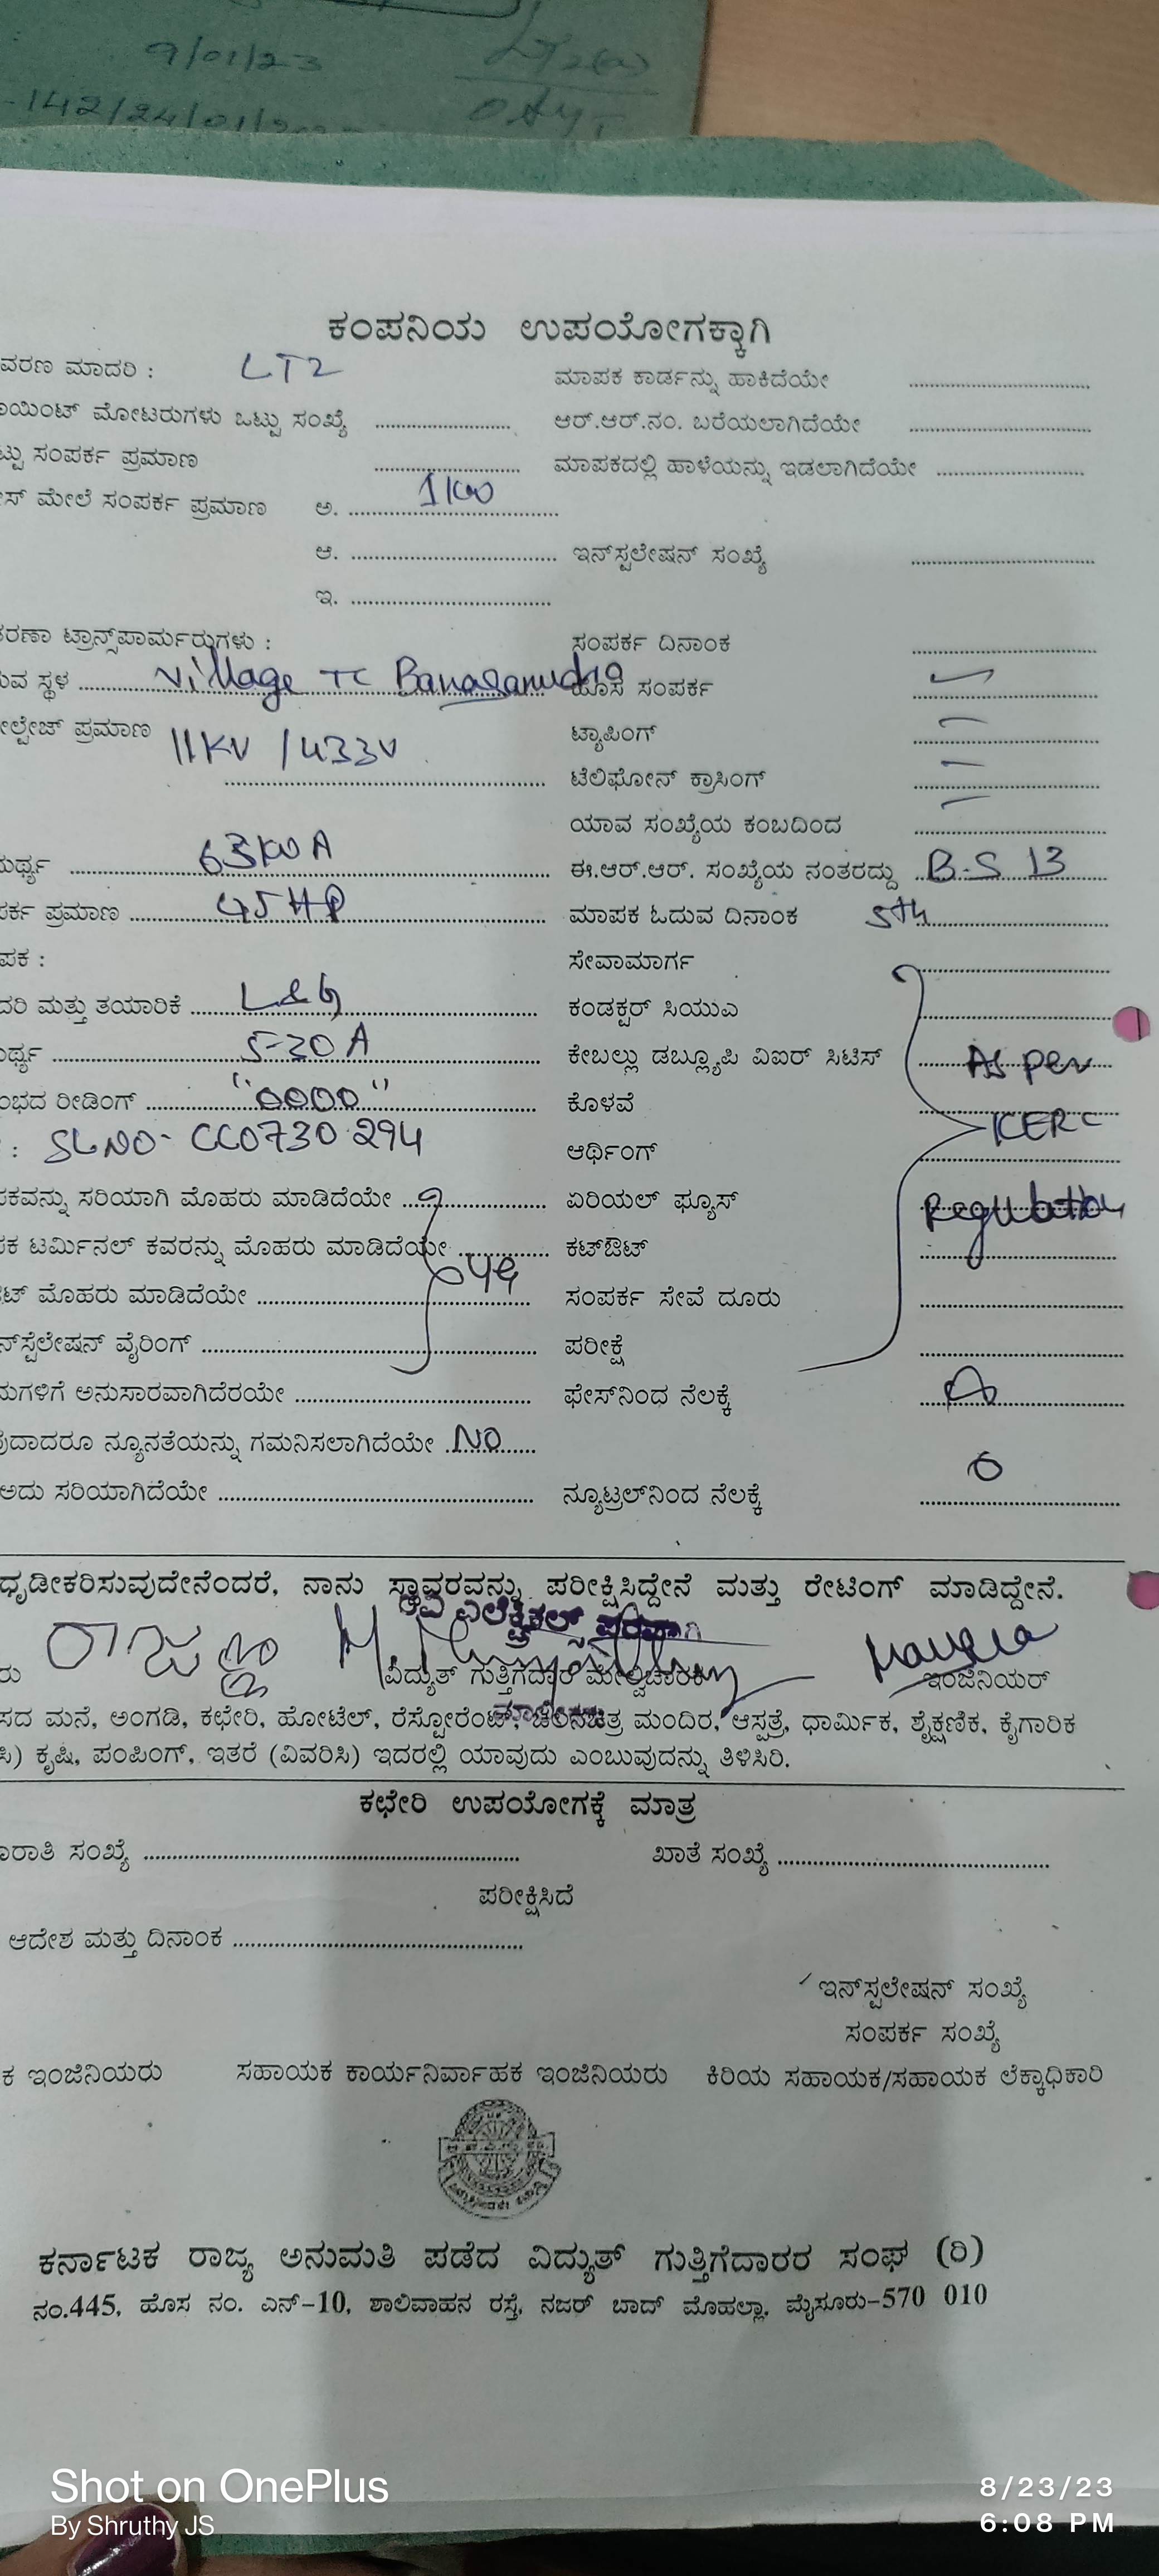 9/01/23
-142/24/01/202
ಕಂಪನಿಯ ಉಪಯೋಗಕ್ಕಾಗಿ
ವರಣ ಮಾದರಿ : LT2 ಮಾಪಕ ಕಾರ್ಡನ್ನು ಹಾಕಿದೆಯೇ
ಯಿಂಟ್ ಮೋಟರುಗಳು ಒಟ್ಟು ಸಂಖ್ಯೆ ಆರ್.ಆರ್.ನಂ. ಬರೆಯಲಾಗಿದೆಯೇ
ಟ್ಟು ಸಂಪರ್ಕ ಪ್ರಮಾಣ ಮಾಪಕದಲ್ಲಿ ಹಾಳೆಯನ್ನು ಇಡಲಾಗಿದೆಯೇ
ಸ್ ಮೇಲೆ ಸಂಪರ್ಕ ಪ್ರಮಾಣ ಅ. 1KW
ಆ. ಇನ್‌ಸ್ಟಲೇಷನ್ ಸಂಖ್ಯೆ
ಇ.
ತರಣಾ ಟ್ರಾನ್ಸ್‌ಪಾರ್ಮರುಗಳು : ಸಂಪರ್ಕ ದಿನಾಂಕ
ುವ ಸ್ಥಳ Village TC Banasamudra ಹೊಸ ಸಂಪರ್ಕ
ೋಲ್ಟೇಜ್ ಪ್ರಮಾಣ 11KV / 433V ಟ್ಯಾಪಿಂಗ್
ಟೆಲಿಫೋನ್ ಕ್ರಾಸಿಂಗ್
ಯಾವ ಸಂಖ್ಯೆಯ ಕಂಬದಿಂದ
ಮರ್ಥ್ಯ 63KVA ಈ.ಆರ್.ಆರ್. ಸಂಖ್ಯೆಯ ನಂತರದ್ದು B.S 13
ಪರ್ಕ ಪ್ರಮಾಣ 45HP ಮಾಪಕ ಓದುವ ದಿನಾಂಕ 5th
ಪಕ : ಸೇವಾಮಾರ್ಗ
ದರಿ ಮತ್ತು ತಯಾರಿಕೆ L&G ಕಂಡಕ್ಟರ್ ಸಿಯುಎ
ರ್ಥ್ಯ 5-30A ಕೇಬಲ್ಲು ಡಬ್ಲ್ಯೂಪಿ ವಿಐರ್ ಸಿಟಿಸ್ As per
ಂಭದ ರೀಡಿಂಗ್ "0000" ಕೊಳವೆ KERC
: SL NO- CC0730294 ಆರ್ಥಿಂಗ್
ಪಕವನ್ನು ಸರಿಯಾಗಿ ಮೊಹರು ಮಾಡಿದೆಯೇ ಏರಿಯಲ್ ಫ್ಯೂಸ್ Regulation
ಪಕ ಟರ್ಮಿನಲ್ ಕವರನ್ನು ಮೊಹರು ಮಾಡಿದೆಯೇ ಕಟ್‌ಔಟ್
ಟ್ ಮೊಹರು ಮಾಡಿದೆಯೇ ಸಂಪರ್ಕ ಸೇವೆ ದೂರು
ನ್‌ಸ್ಟೆಲೇಷನ್ ವೈರಿಂಗ್ ಪರೀಕ್ಷೆ
ಮಗಳಿಗೆ ಅನುಸಾರವಾಗಿದೆರಯೇ ಫೇಸ್‌ನಿಂದ ನೆಲಕ್ಕೆ
ವುದಾದರೂ ನ್ಯೂನತೆಯನ್ನು ಗಮನಿಸಲಾಗಿದೆಯೇ NO
ಅದು ಸರಿಯಾಗಿದೆಯೇ ನ್ಯೂಟ್ರಲ್‌ನಿಂದ ನೆಲಕ್ಕೆ
ಧೃಡೀಕರಿಸುವುದೇನೆಂದರೆ, ನಾನು ಸ್ಥಾವರವನ್ನು ಪರೀಕ್ಷಿಸಿದ್ದೇನೆ ಮತ್ತು ರೇಟಿಂಗ್ ಮಾಡಿದ್ದೇನೆ.
ಎಲೆಕ್ಟ್ರಿಕಲ್ಸ್ ಪರವಾಗಿ
ರು ವಿದ್ಯುತ್ ಗುತ್ತಿಗೆದಾರ ಮೇಲ್ವಿಚಾರಕ ಇಂಜಿನಿಯರ್
ಸದ ಮನೆ, ಅಂಗಡಿ, ಕಛೇರಿ, ಹೋಟೆಲ್, ರೆಸ್ಟೋರೆಂಟ್, ಚಲನಚಿತ್ರ ಮಂದಿರ, ಆಸ್ಪತ್ರೆ, ಧಾರ್ಮಿಕ, ಶೈಕ್ಷಣಿಕ, ಕೈಗಾರಿಕ
ಸಿ) ಕೃಷಿ, ಪಂಪಿಂಗ್, ಇತರೆ (ವಿವರಿಸಿ) ಇದರಲ್ಲಿ ಯಾವುದು ಎಂಬುವುದನ್ನು ತಿಳಿಸಿರಿ.
ಕಛೇರಿ ಉಪಯೋಗಕ್ಕೆ ಮಾತ್ರ
ರಾತಿ ಸಂಖ್ಯೆ ಖಾತೆ ಸಂಖ್ಯೆ
ಪರೀಕ್ಷಿಸಿದೆ
ಆದೇಶ ಮತ್ತು ದಿನಾಂಕ
ಇನ್‌ಸ್ಟಲೇಷನ್ ಸಂಖ್ಯೆ
ಸಂಪರ್ಕ ಸಂಖ್ಯೆ
ಕ ಇಂಜಿನಿಯರು ಸಹಾಯಕ ಕಾರ್ಯನಿರ್ವಾಹಕ ಇಂಜಿನಿಯರು ಕಿರಿಯ ಸಹಾಯಕ/ಸಹಾಯಕ ಲೆಕ್ಕಾಧಿಕಾರಿ
ಕರ್ನಾಟಕ ರಾಜ್ಯ ಅನುಮತಿ ಪಡೆದ ವಿದ್ಯುತ್ ಗುತ್ತಿಗೆದಾರರ ಸಂಘ (ರಿ)
ನಂ.445, ಹೊಸ ನಂ. ಎನ್-10, ಶಾಲಿವಾಹನ ರಸ್ತೆ, ನಜರ್ ಬಾದ್ ಮೊಹಲ್ಲಾ, ಮೈಸೂರು-570 010
Shot on OnePlus
By Shruthy JS
8/23/23
6:08 PM